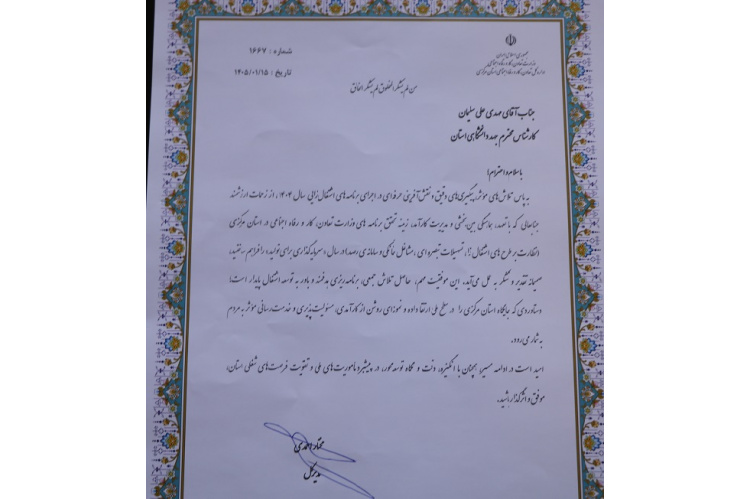 جمهوری اسلامی ایران
وزارت تعاون، کار و رفاه اجتماعی
اداره کل تعاون، کار و رفاه اجتماعی استان مرکزی
شماره : ۱۶۶۷
تاریخ : ۱۴۰۵/۰۱/۱۵
من لم یشکر المخلوق لم یشکر الخالق
جناب آقای مهدی علی سلیمان
کارشناس محترم جهاد دانشگاهی استان
با سلام و احترام؛
به پاس تلاش‌های مؤثر، پیگیری‌های دقیق و نقش آفرینی حرفه‌ای در اجرای برنامه های اشتغال‌زایی سال ۱۴۰۴، از زحمات ارزشمند
جنابعالی که با تعهد، هماهنگی بین‌بخشی و مدیریت کارآمد، زمینه تحقق برنامه های وزارت تعاون، کار و رفاه اجتماعی در استان مرکزی
(نظارت بر طرح های اشتغال زا، تسهیلات تبصره ای، مشاغل خانگی و سامانه ی رصد)در سال «سرمایه گذاری برای تولید» را فراهم ساختید،
صمیمانه تقدیر و تشکر به عمل می‌آید. این موفقیت مهم، حاصل تلاش جمعی، برنامه‌ریزی هدفمند و باور به توسعه اشتغال پایدار است؛
دستاوردی که جایگاه استان مرکزی را در سطح ملی ارتقا داده و نمونه‌ای روشن از کارآمدی، مسئولیت‌پذیری و خدمت‌رسانی مؤثر به مردم
به شمار می رود.
امید است در ادامه مسیر، همچنان با انگیزه، دقت و نگاه توسعه محور، در پیشبرد مأموریت‌های ملی و تقویت فرصت‌های شغلی استان،
موفق و اثرگذار باشید.
مختار احمدی
مدیرکل